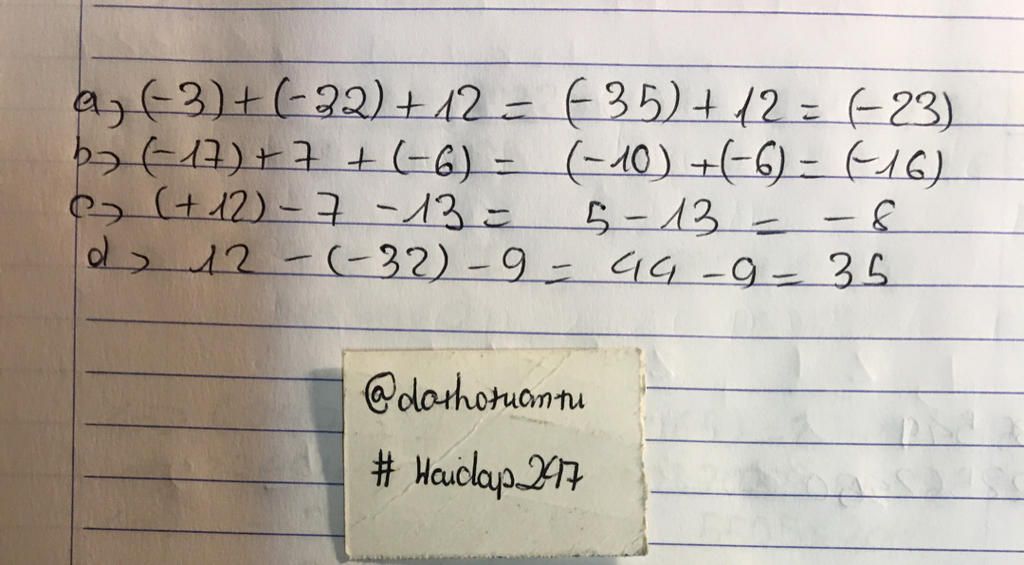 a, (-3) + (-32) + 12 = (-35) + 12 = (-23)
b, (-17) + 7 + (-6) = (-10) + (-6) = (-16)
c, (+12) - 7 - 13 = 5 - 13 = - 8
d, 12 - (-32) - 9 = 44 - 9 = 35
@dothotuantu
# Hoidap247